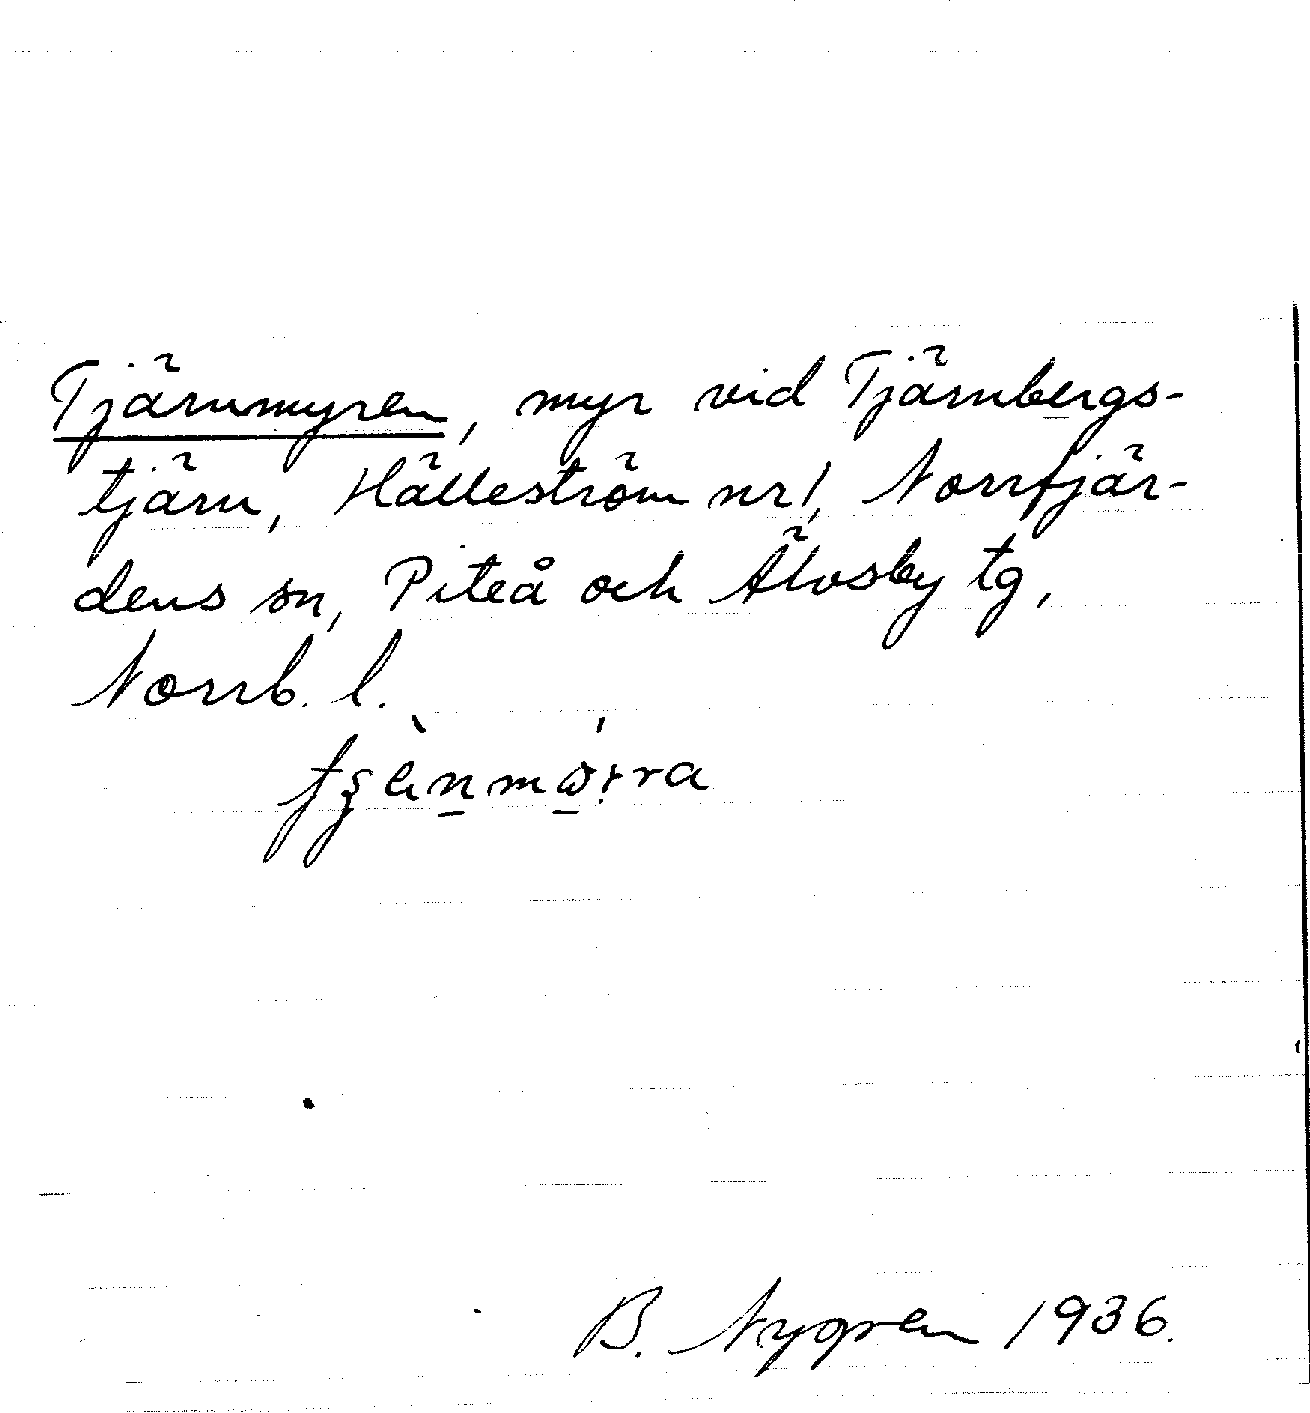 Tjärnmyren, myr vid Tjärnbergs-
tjärn, Hälleström nr 1, Norrfjär-
dens sn, Piteå och Älvsby tg,
Norrb. l.
B. Nygren 1936.